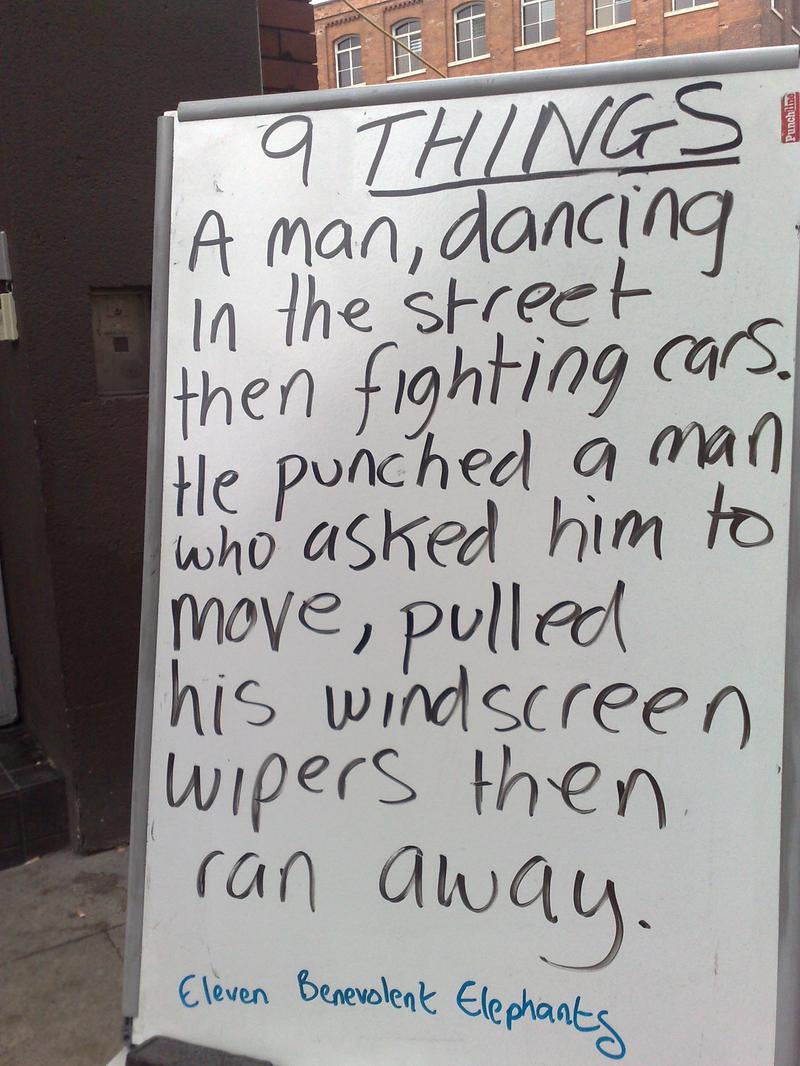 9 THINGS
A man, dancing
In the street
then fighting cars.
He punched a man
who asked him to
move, pulled
his windscreen
wipers then
ran away.
Eleven Benevolent Elephants
Punchline